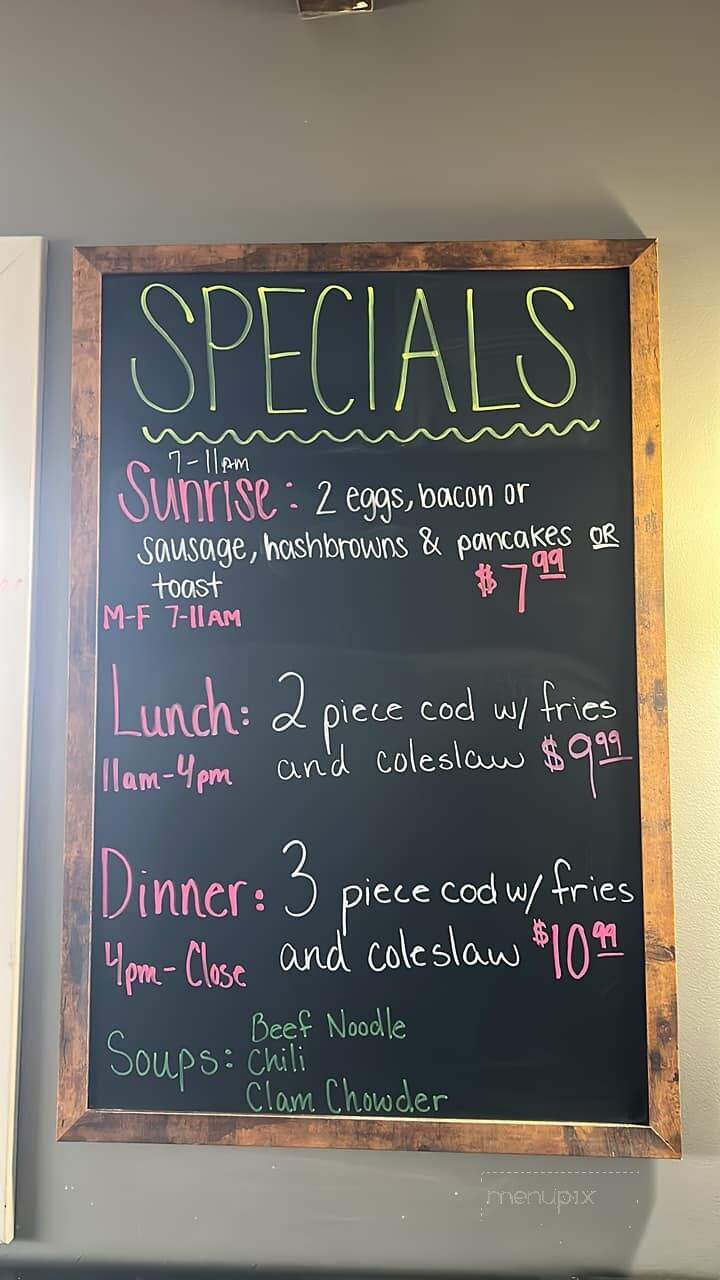 SPECIALS
7-11am
Sunrise: 2 eggs, bacon or
sausage, hashbrowns & pancakes OR
toast $7.99
M-F 7-11AM
Lunch: 2 piece cod w/ fries
11am-4pm and coleslaw $9.99
Dinner: 3 piece cod w/ fries
4pm-Close and coleslaw $10.99
Soups: Beef Noodle
Chili
Clam Chowder
menupix